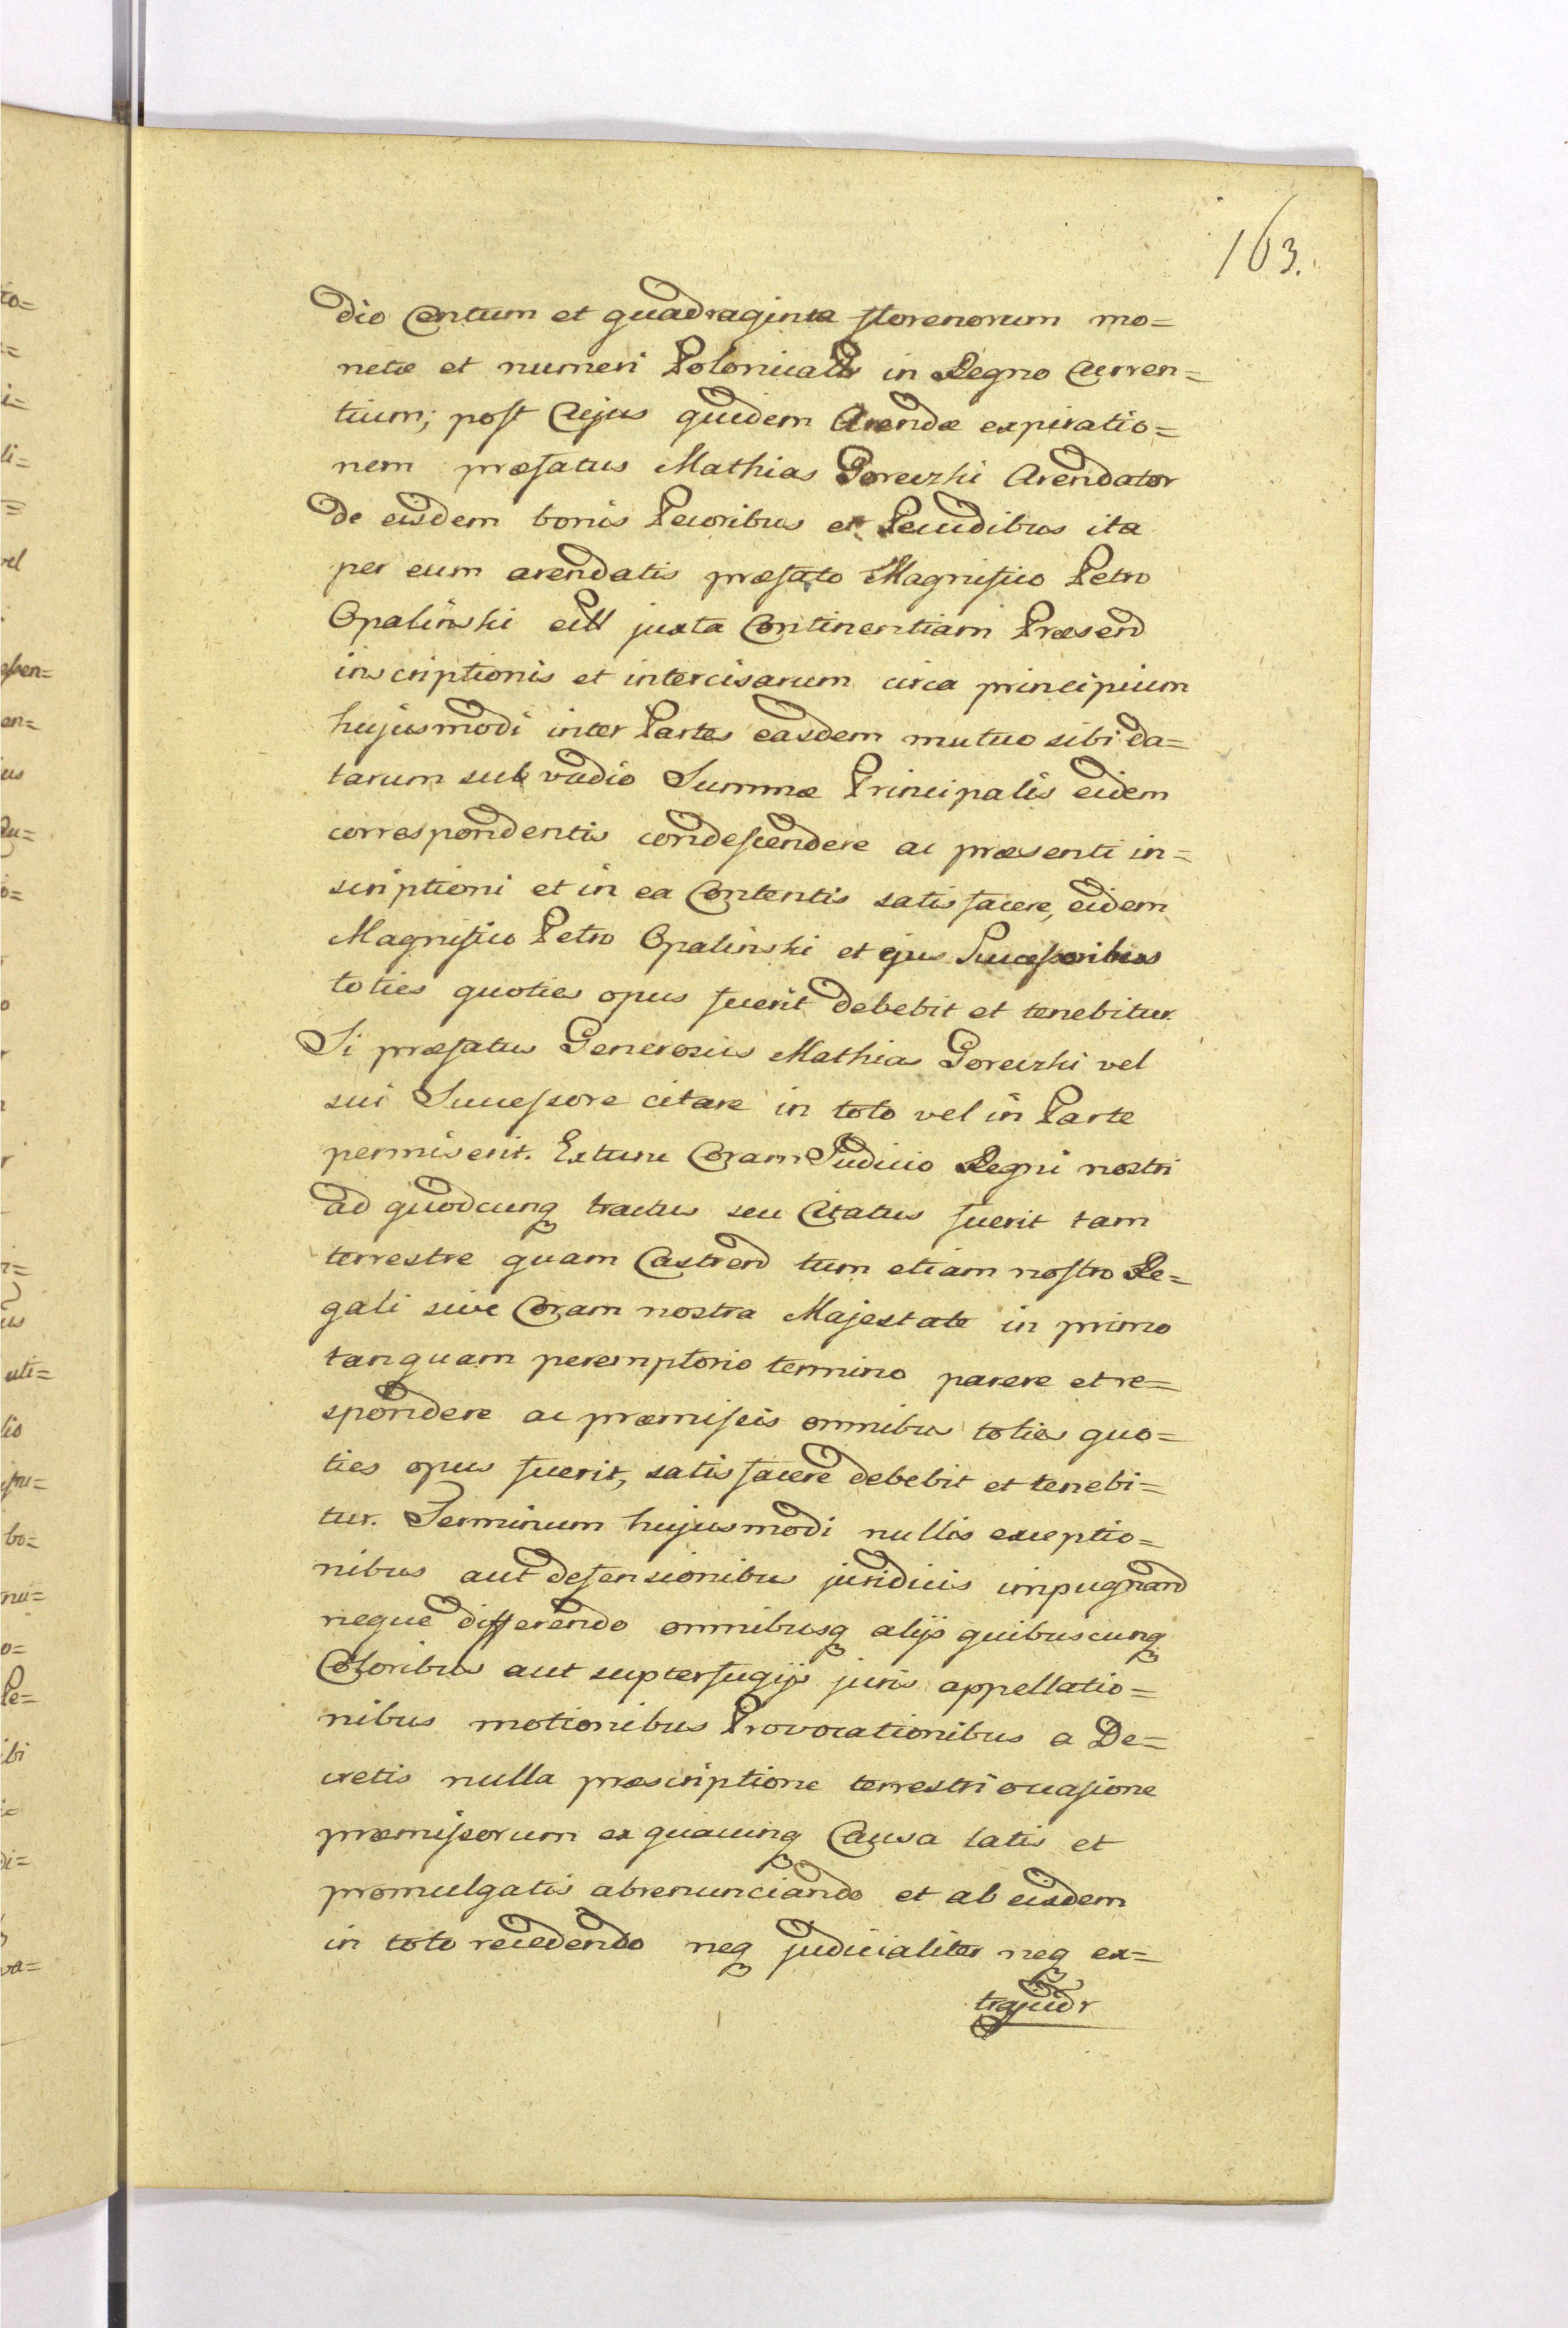 163.
dio Centum et quadraginta florenorum mo=
netæ et numeri Polonicalis in Regno Curren=
tium; post Cujus quidem Arendæ expiratio=
nem præfatus Mathias Goreczki Arendator
de eisdem bonis Pecoribus et Pecudibus ita
per eum arendatis præfato Magnifico Petro
Opalinski eill juxta Continentiam Præsend
inscriptionis et intercisarum circa principium
hujusmodi inter Partes easdem mutuo sibi da=
tarum sub vadio Summæ Principalis eidem
correspondentis condescendere ac præsenti in=
scriptioni et in ea Contentis satisfacere, eidem
Magnifico Petro Opalinski et ejus Successoribus
toties quoties opus fuerit debebit et tenebitur.
Si præfatus Generosus Mathias Goreczki vel
sui Successore citare in toto vel in Parte
permiserit. Extunc Coram Judicio Regni nostri
ad quodcunq tractus seu Citatus fuerit tam
terrestre quam Castrend tum etiam nostro Re=
gali sive Coram nostra Majestate in primo
tanquam peremptorio termino parere et re=
spondere ac præmissis omnibus toties quo=
ties opus fuerit, satisfacere debebit et tenebi=
tur. Terminum hujusmodi nullis exceptio=
nibus aut defensionibus juridicis impugnand
neque differendo omnibusq alijs quibuscunq
Coloribus aut supterfugijs juris appellatio=
nibus motionibus Provocationibus a De=
cretis nulla præscriptione terrestri occasione
præmissorum ex quacunq Causa latis et
promulgatis abrenunciando et ab eisdem
in toto recedendo neq judicialiter neq ex=
trajudr